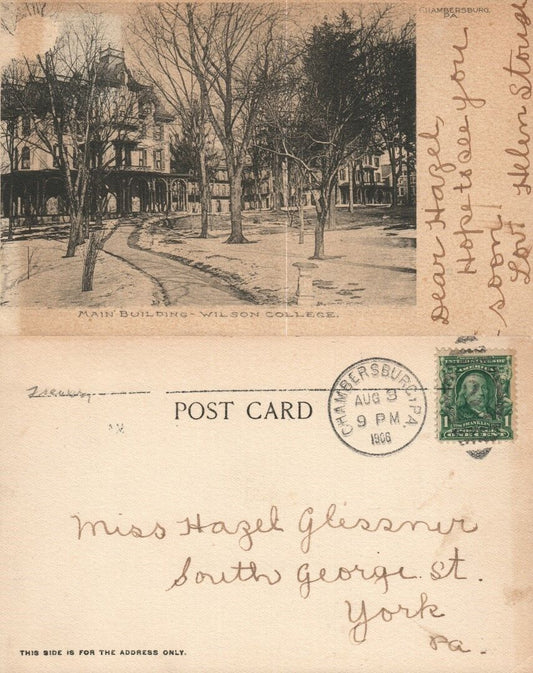 CHAMBERSBURG,
PA.
Dear Hazel,
Hope to see you
soon!
Love Helen
MAIN BUILDING - WILSON COLLEGE.
POST CARD
CHAMBERSBURG, PA.
AUG 3
9 PM
1906
1 1
ONE CENT
Miss Hazel Glessner
South George St.
York
Pa.
THIS SIDE IS FOR THE ADDRESS ONLY.